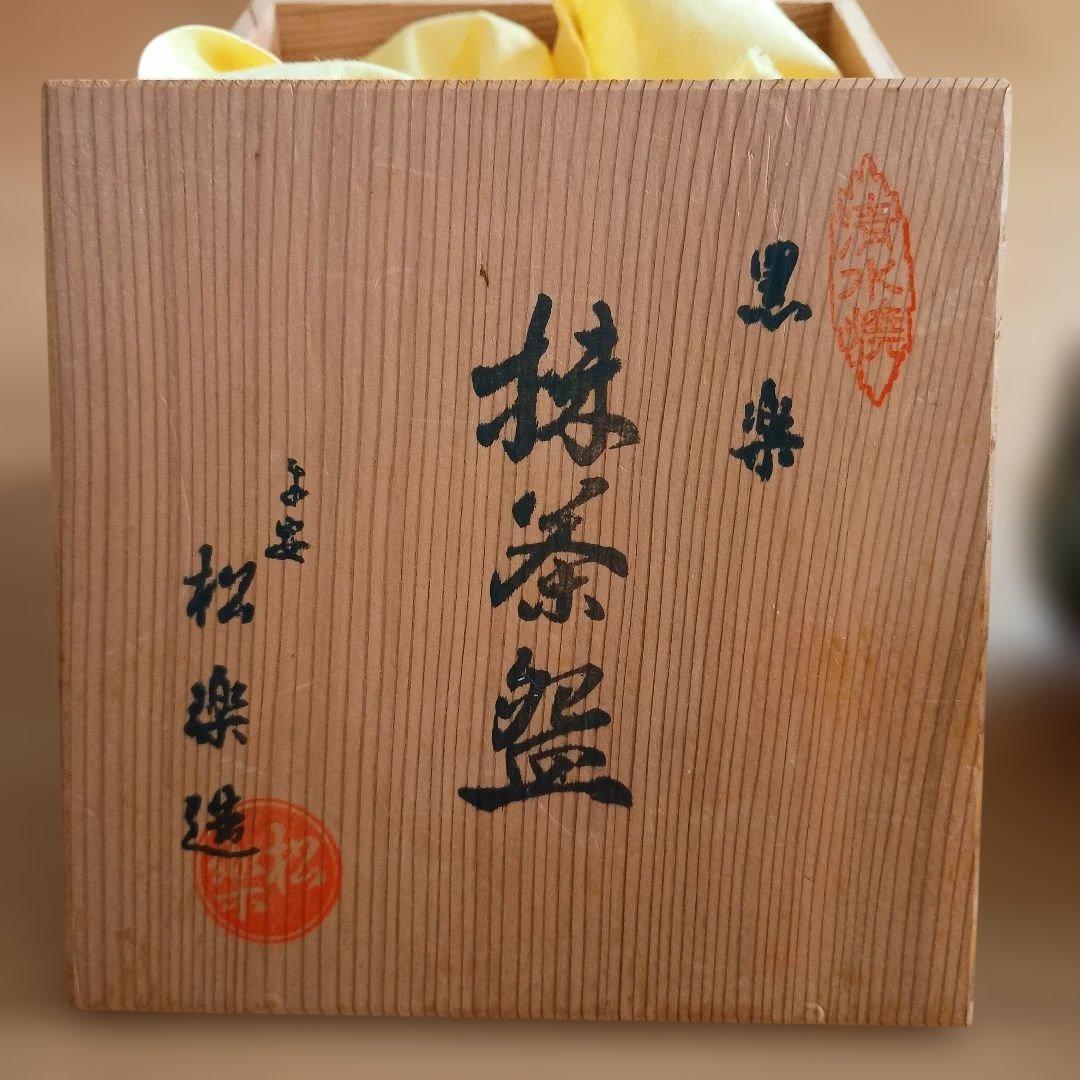 清水焼
黒楽
抹茶盌
平安
松楽造
松楽